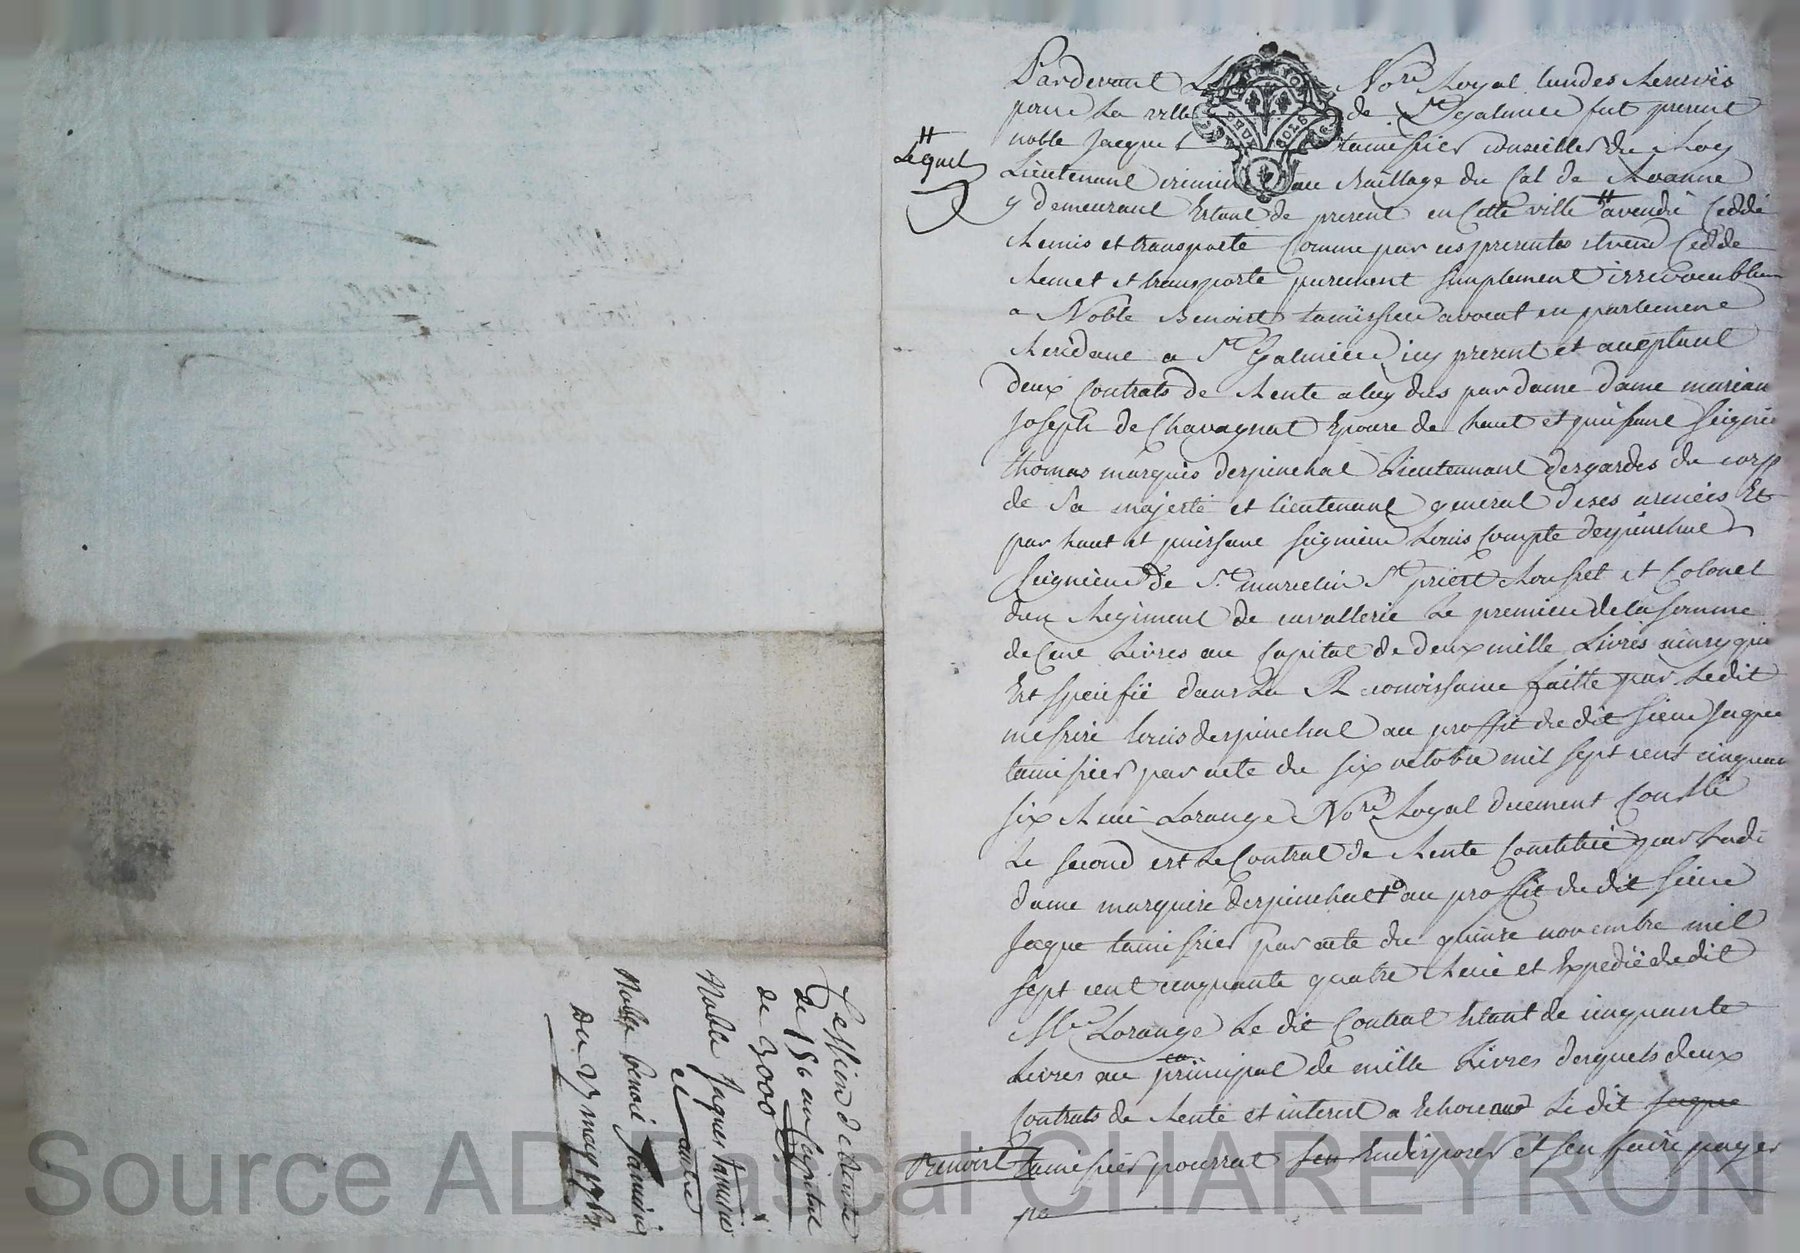 Pardevant Le Nore Royal landes Reservés
pour La ville de St Galmier fut present
noble Jacque tamisier conseiller du Roy
Lieutenant crimin au Baillage du Cal de Roanne
y demeurant Estant de present en Cette ville # avendu Ceddé
Remis et transporté Comme par ces presentes il vend Cedde
Remet et transporte purement simplement irrevocablem
a Noble Benoist tamissier avocat en parlement
Residant a St Galmier icy present et aceptant
deux Contrats de Rente a luy dus par dame dame marian
Joseph de Chavagnat Epouse de haut et puissant Seigneu
thomas marquis despinchal Lieutennant des gardes du corp
de Sa majesté et lieutenant general de ses armées Et
par haut et puissant seigneur Louis Compte despinchal
Seigneur de St marcelin St priest Rousset et Colonel
dun Regiment de cavallerie Le premier de la somme
de Cent Livres au Capital de deux mille Livres ainsy qui
Est speifié dans La Reconoissance faitte par Le dit
messire louis despinchal au proffit du dit sieur Jaque
tamisier par acte du six octobre mil sept cent cinquan
six Reçu Lorange Nore Royal duement Conllé
Le second est Le Contrat de Rente Constitué par Ladi
dame marquise despinchal au proffit du dit sieur
Jaque tamisier par acte du quinse novembre mil
sept cent cinquante quatre Reçu et Expedié du dit
Me Lorange Le dit Contrat Etant de cinquante
Livres au principal de mille Livres desquels deux
Contrats de Rente et interest a Echoir Le dit Jaque
Benoist tamisier pourrat Endisposer et sen faire payer
pa
#
Lequel
Cession de Rente
de 150 au Capital
de 3000
Noble Jaques tamisier
et autre
Noble benoit Tamisier
Du 23 may 176
Source AD Pascal CHAREYRON